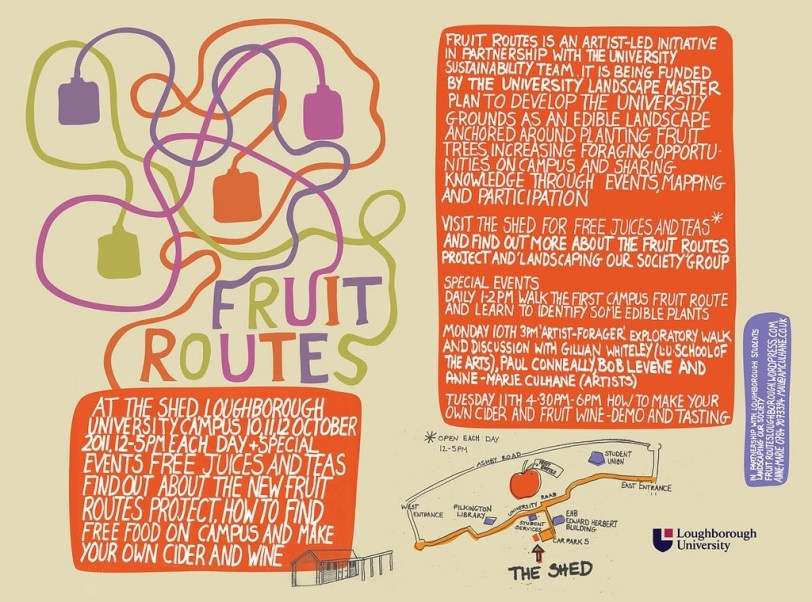 FRUIT
ROUTES
AT THE SHED, LOUGHBOROUGH
UNIVERSITY CAMPUS 10,11,12 OCTOBER
2011, 12-5PM EACH DAY + SPECIAL
EVENTS FREE JUICES AND TEAS
FIND OUT ABOUT THE NEW FRUIT
ROUTES PROJECT, HOW TO FIND
FREE FOOD ON CAMPUS AND MAKE
YOUR OWN CIDER AND WINE
FRUIT ROUTES IS AN ARTIST-LED INITIATIVE
IN PARTNERSHIP WITH THE UNIVERSITY
SUSTAINABILITY TEAM. IT IS BEING FUNDED
BY THE UNIVERSITY LANDSCAPE MASTER
PLAN TO DEVELOP THE UNIVERSITY
GROUNDS AS AN EDIBLE LANDSCAPE
ANCHORED AROUND PLANTING FRUIT
TREES, INCREASING FORAGING OPPORTU-
NITIES ON CAMPUS AND SHARING
KNOWLEDGE THROUGH EVENTS, MAPPING
AND PARTICIPATION
VISIT THE SHED FOR FREE JUICES AND TEAS*
AND FIND OUT MORE ABOUT THE FRUIT ROUTES
PROJECT AND 'LANDSCAPING OUR SOCIETY' GROUP
SPECIAL EVENTS
DAILY 1-2PM WALK THE FIRST CAMPUS FRUIT ROUTE
AND LEARN TO IDENTIFY SOME EDIBLE PLANTS
MONDAY 10TH 3PM 'ARTIST-FORAGER' EXPLORATORY WALK
AND DISCUSSION WITH GILLIAN WHITELEY (LU SCHOOL OF
THE ARTS), PAUL CONNEALLY, BOB LEVENE AND
ANNE-MARIE CULHANE (ARTISTS)
TUESDAY 11TH 4-30PM-6PM HOW TO MAKE YOUR
OWN CIDER AND FRUIT WINE-DEMO AND TASTING
* OPEN EACH DAY
12-5PM
ASHBY ROAD
FRUIT
ROUTES
STUDENT
UNION
EAST ENTRANCE
WEST
ENTRANCE
PILKINGTON
LIBRARY
UNIVERSITY ROAD
STUDENT
SERVICES
EHB
EDWARD HERBERT
BUILDING
CAR PARK 5
THE SHED
IN PARTNERSHIP WITH LOUGHBOROUGH STUDENTS
LANDSCAPING OUR SOCIETY
FRUITROUTESLOUGHBOROUGH.WORDPRESS.COM
Loughborough
University